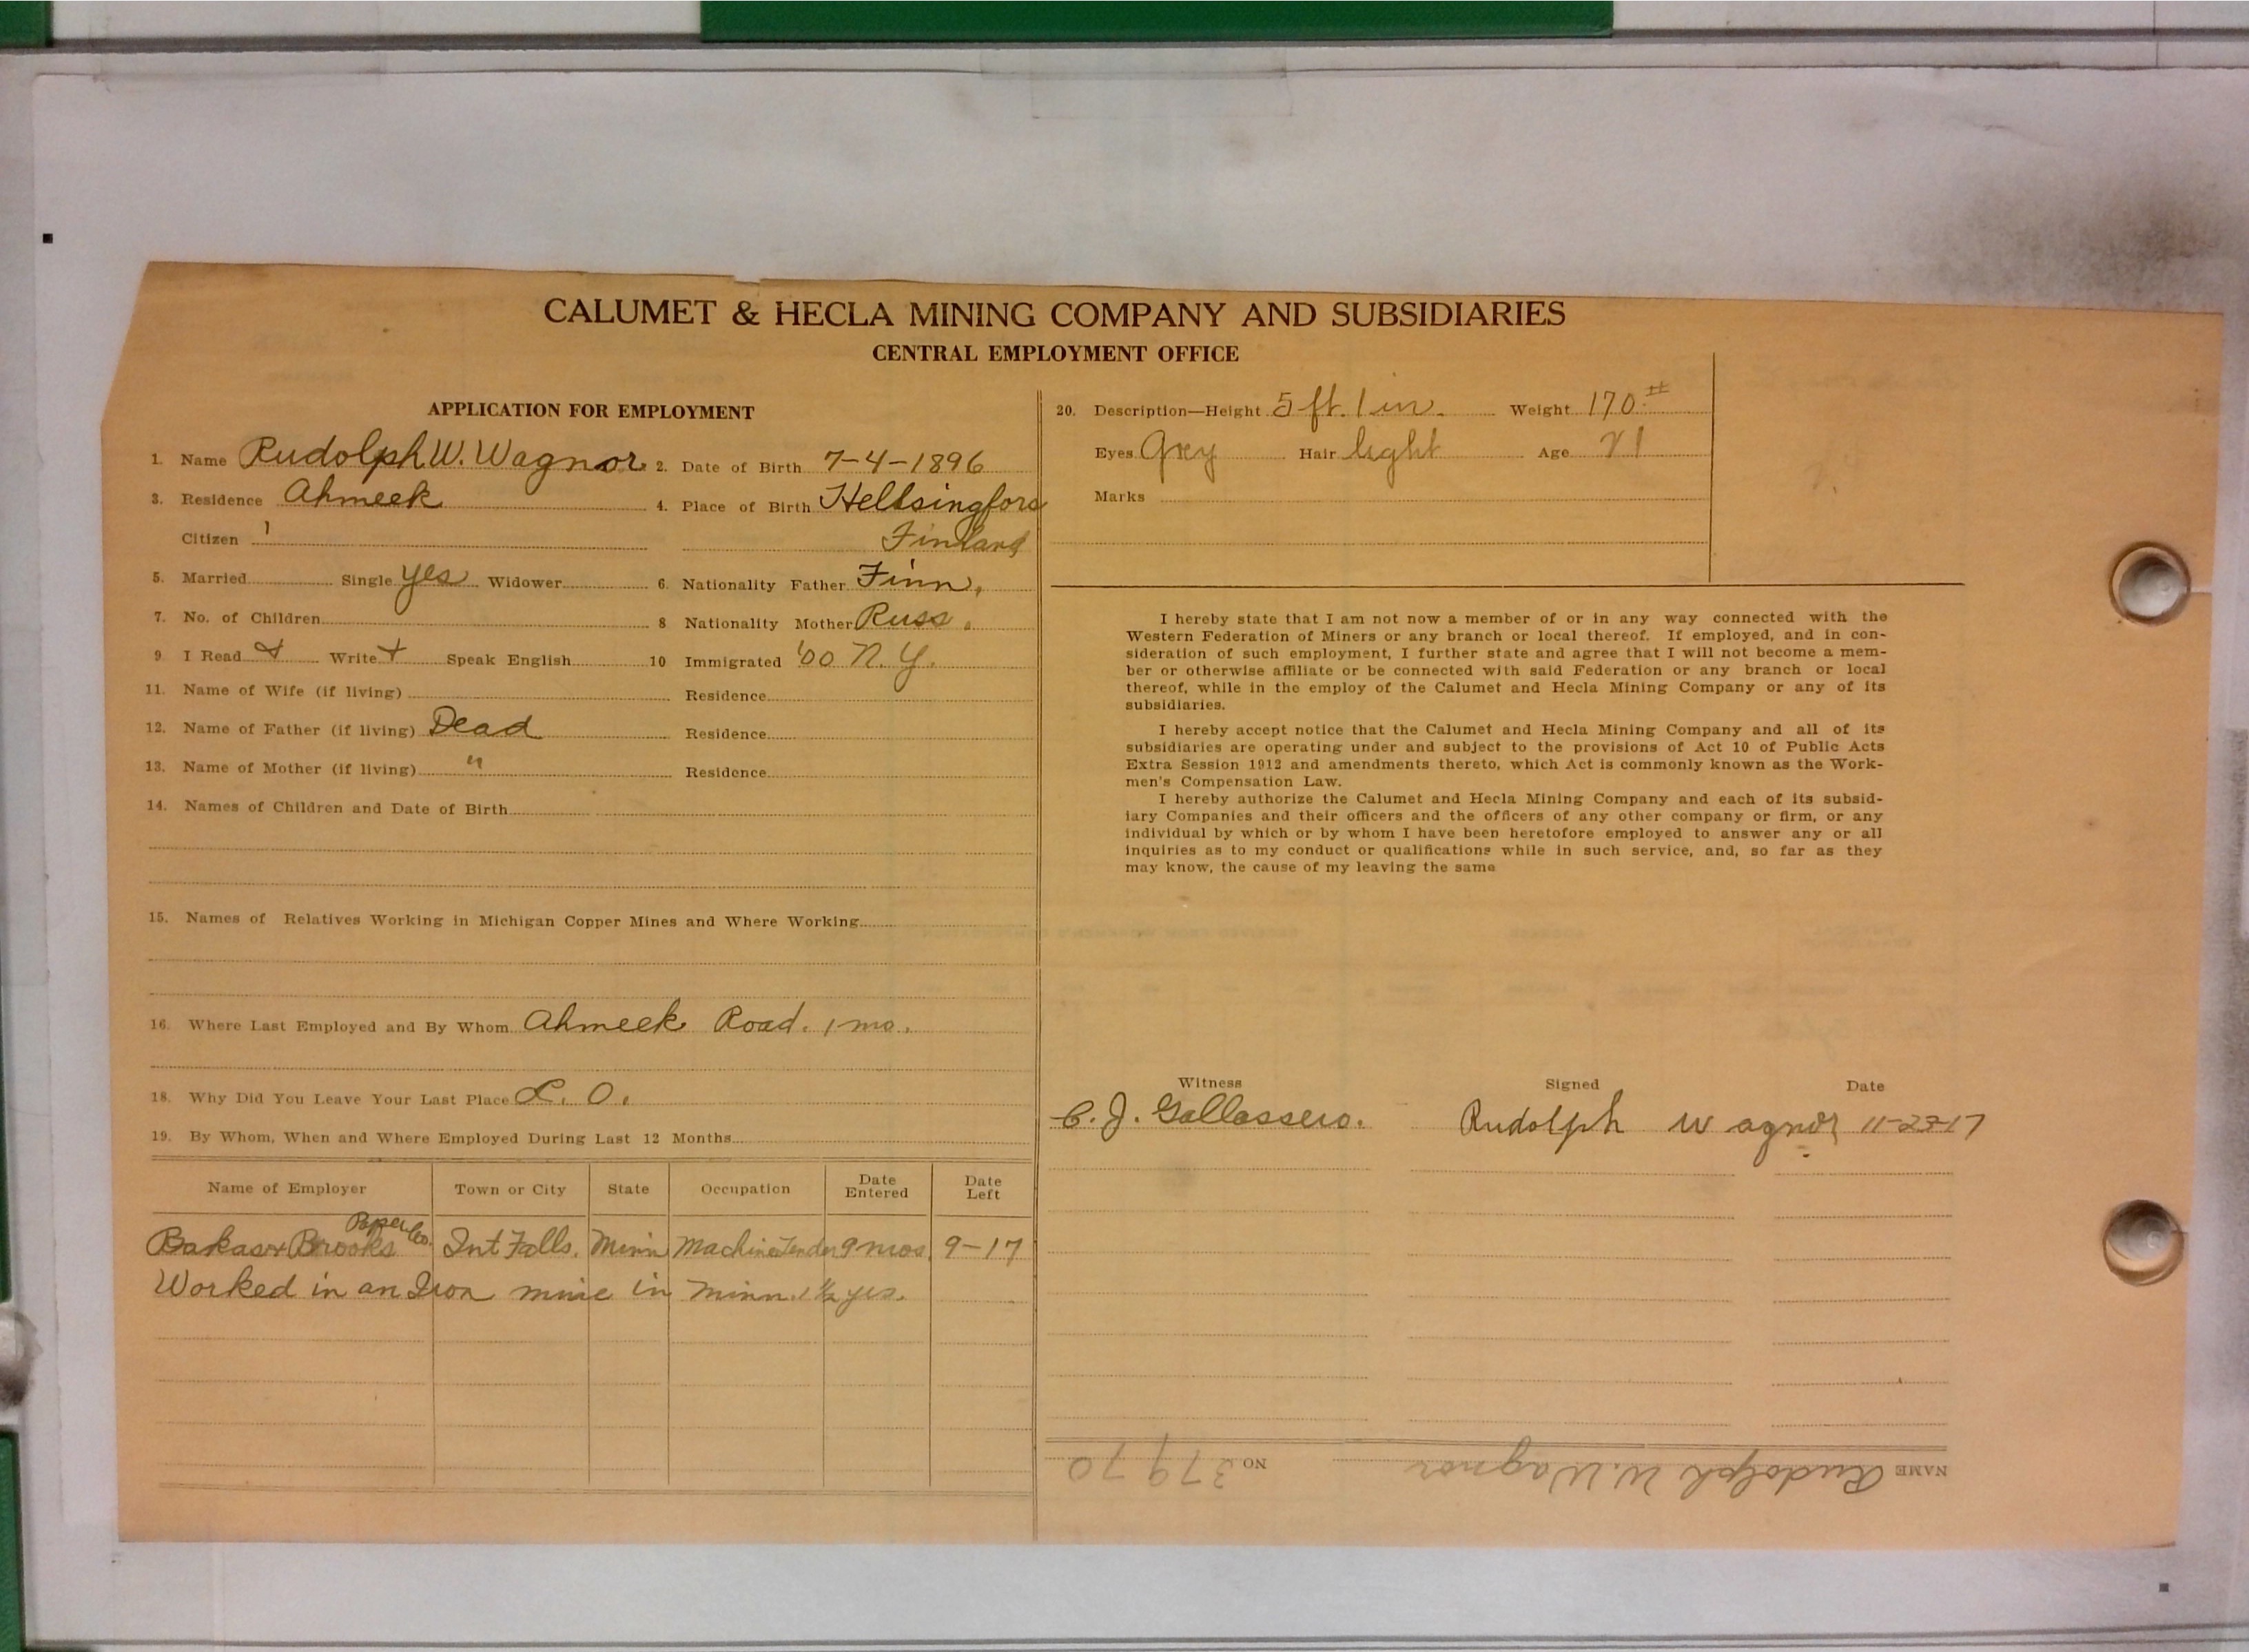 CALUMET & HECLA MINING COMPANY AND SUBSIDIARIES
CENTRAL EMPLOYMENT OFFICE
APPLICATION FOR EMPLOYMENT
1. Name Rudolph W. Wagnor 2. Date of Birth 7-4-1896
3. Residence Ahmeek 4. Place of Birth Helsingfors
Citizen Finland
5. Married Single yes Widower 6. Nationality Father Finn.
7. No. of Children 8 Nationality Mother Russ.
9 I Read Write Speak English 10 Immigrated '00 N.Y.
11. Name of Wife (if living) Residence
12. Name of Father (if living) Dead Residence
13. Name of Mother (if living) " Residence
14. Names of Children and Date of Birth
15. Names of Relatives Working in Michigan Copper Mines and Where Working
16. Where Last Employed and By Whom Ahmeek Road. 1 mo.
18. Why Did You Leave Your Last Place L. O.
19. By Whom, When and Where Employed During Last 12 Months
Name of Employer Town or City State Occupation Date Entered Date Left
Brooks Paper Co. Int Falls. Minn Machine Tender 9 mos. 9-17
Worked in an Iron mine in Minn. 1 1/2 yrs.
20. Description—Height 5 ft. 1 in. Weight 170 #
Eyes Grey Hair light Age 21
Marks
I hereby state that I am not now a member of or in any way connected with the
Western Federation of Miners or any branch or local thereof. If employed, and in con-
sideration of such employment, I further state and agree that I will not become a mem-
ber or otherwise affiliate or be connected with said Federation or any branch or local
thereof, while in the employ of the Calumet and Hecla Mining Company or any of its
subsidiaries.
I hereby accept notice that the Calumet and Hecla Mining Company and all of its
subsidiaries are operating under and subject to the provisions of Act 10 of Public Acts
Extra Session 1912 and amendments thereto, which Act is commonly known as the Work-
men's Compensation Law.
I hereby authorize the Calumet and Hecla Mining Company and each of its subsid-
iary Companies and their officers and the officers of any other company or firm, or any
individual by which or by whom I have been heretofore employed to answer any or all
inquiries as to my conduct or qualifications while in such service, and, so far as they
may know, the cause of my leaving the same
Witness Signed Date
C. J. Rudolph Wagnor
NAME Rudolph W. Wagnor NO. 37970